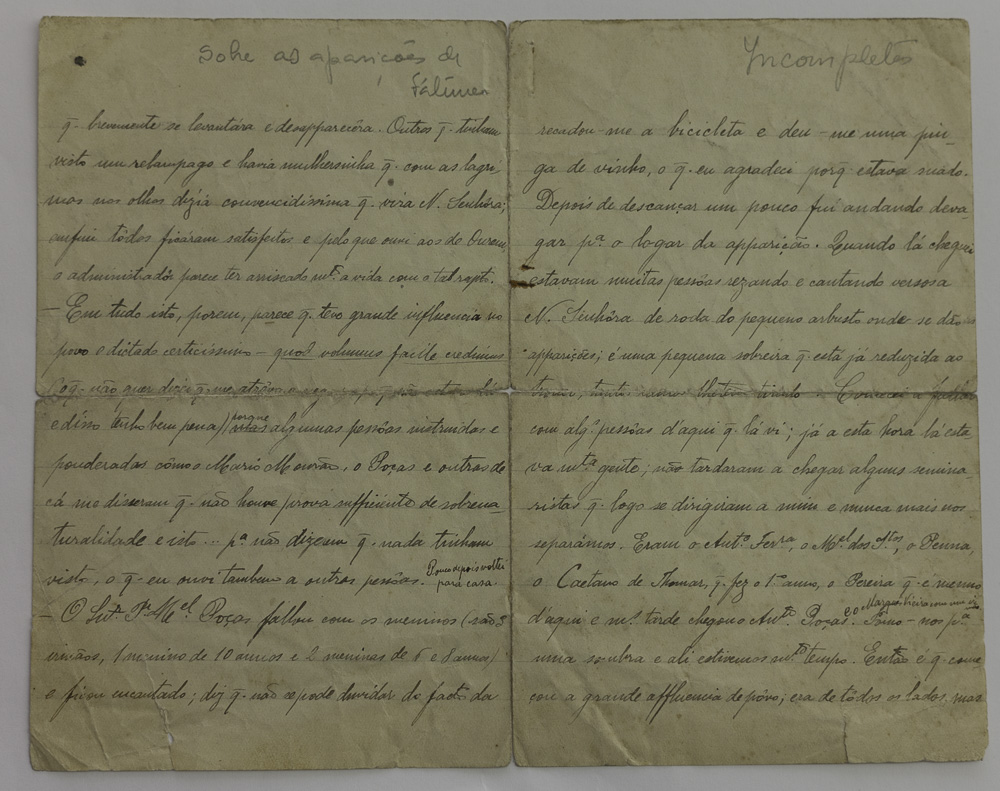 Sobre as aparições de
Fátima
q̄. brevemente se levantára e desapparecêra. Outros q̄. tinham
visto um relampago e havia mulhersinha q̄. com as lagri
mas nos olhos dizia convencidissima q. vira N. Senhôra;
emfim tôdos ficáram satisfeitos, e pelo que ouvi aos de Ourem
o administrador parece ter arriscado m.to a vida com o tal rapto.
— Em tudo isto, porem, parece q. teve grande influencia no
povo o dictado certicissimo — quod volumus facile credimus
(o q. não quer dizer q. me
e disso tenho bem pena) porque algumas pessôas instruidas e
ponderadas cômo o Mario Mourão, o Poças e outros de
cá me disseram q̄. não houve prova sufficiente de sobrena
turalidade e isto... p.a não dizerem q̄. nada tinham
visto, o q̄. eu ouvi tambem a outros pessôas. Pouco depois voltei
para casa
— O Snr. P.e M.el Poças fallou com os meninos (são 3
irmãos, 1 menino de 10 annos e 2 meninas de 6 e 8 annos)
e ficou encantado; diz q̄. não se pode duvidar do facto da
Incompletos
recadou-me a bicicleta e deu-me uma pin-
ga de vinho, o q̄. eu agradeci porq̄ estava suado.
Depois de descançar um pouco fui andando deva
gar p.a o logar da apparição. Quando lá cheguei
estavam muitas pessôas rezando e cantando versos a
N. Senhôra de roda do pequeno arbusto onde se dão
apparições; é uma pequena sobreira q̄. está já reduzida ao
Comecei a fallar
com alg.s pessôas d'aqui q̄. lá vi; já a esta hora lá esta
va m.ta gente; não tardaram a chegar alguns semina
ristas q̄. logo se dirigiram a mim e nunca mais nos
separámos. Eram o Ant.o Ferr.a, o M.el dos S.tos, o Penna,
o Caetano de Thomar, q̄. fez o 1.o anno, o Pereira q̄. e mesmo
d'aqui e m.s tarde chegou o Ant.o Poças. Fomo-nos p.a
uma sombra e ali estivemos m.to tempo. Então é q̄. come
çou a grande affluencia de pôvo; era de tôdos os lados, mas